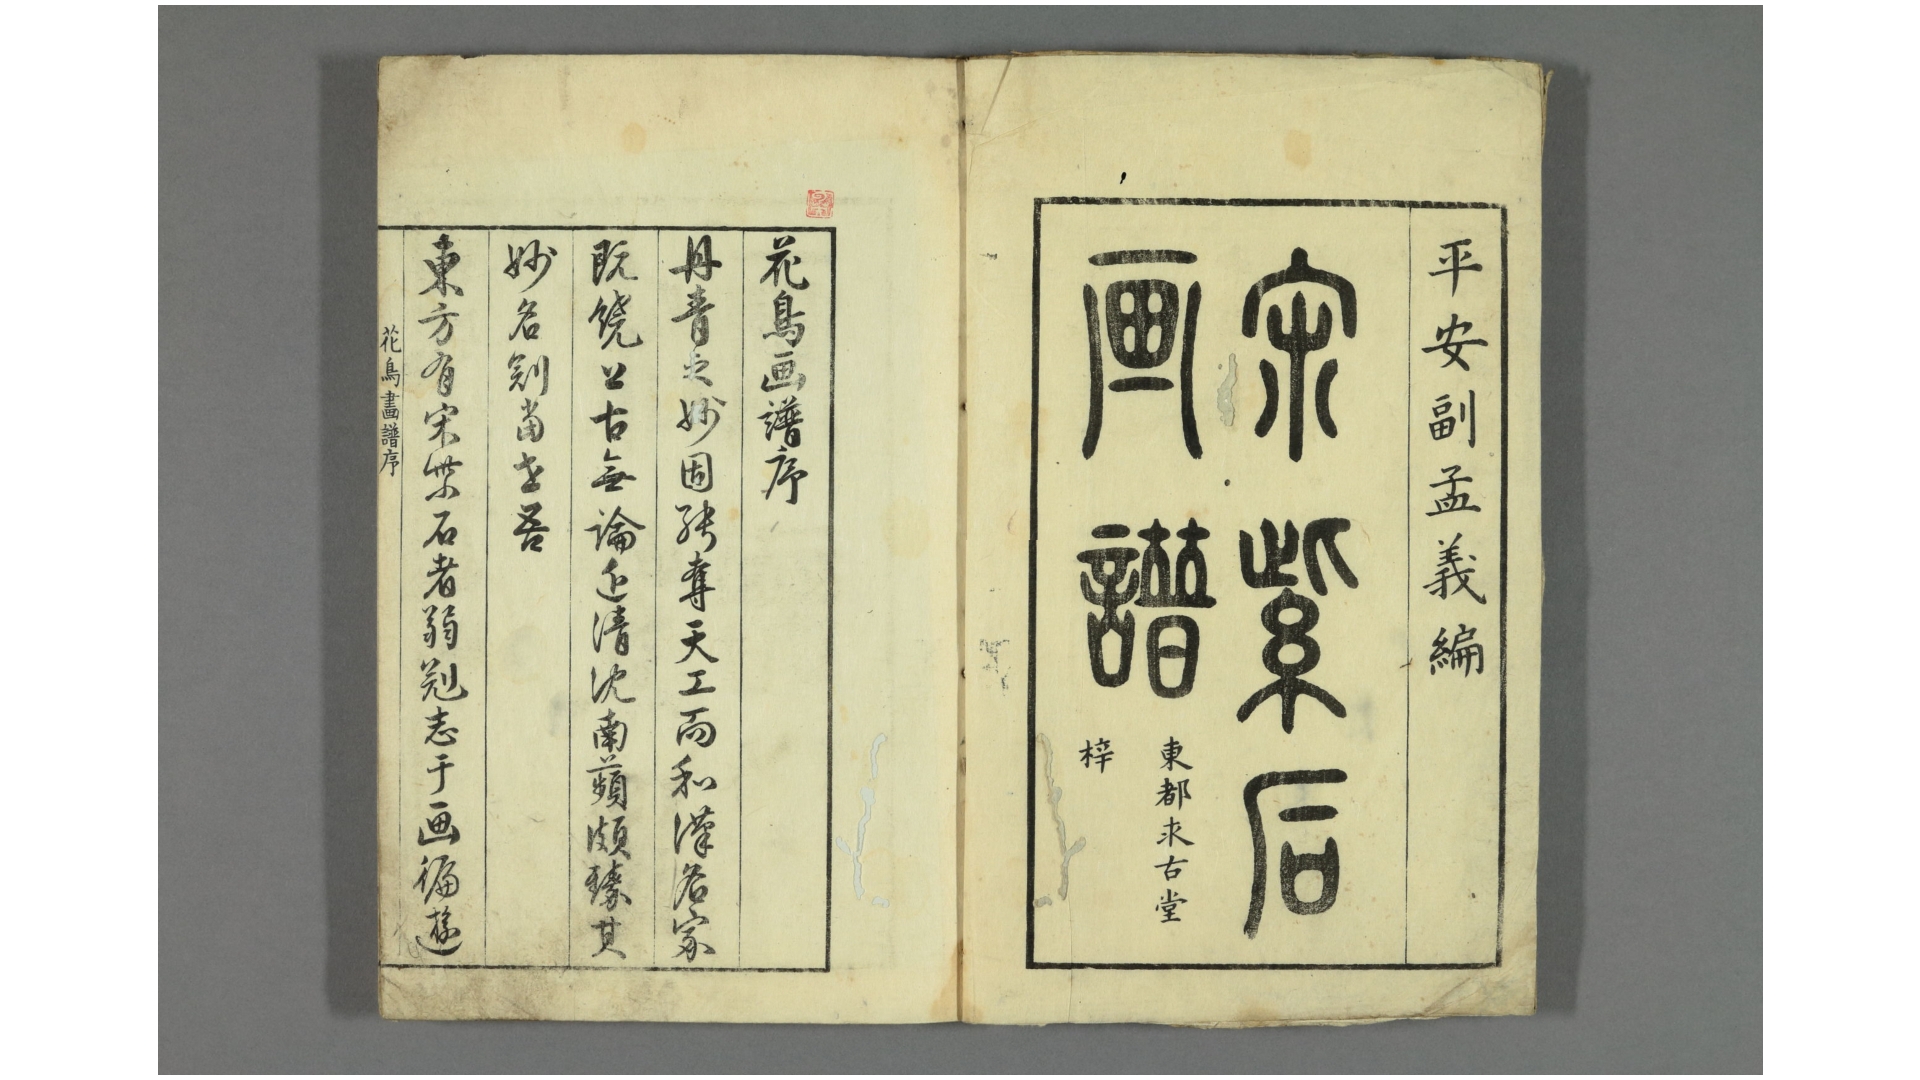 平安副孟義編
宋紫石
画譜
東都求古堂
梓
花鳥画譜序
丹青之妙固能奪天工而和漢名家
既饒上古無論近清沈南蘋頗臻其
妙名剏當世吾
東方有宋紫石者弱冠志于画徧遊
花鳥畫譜序